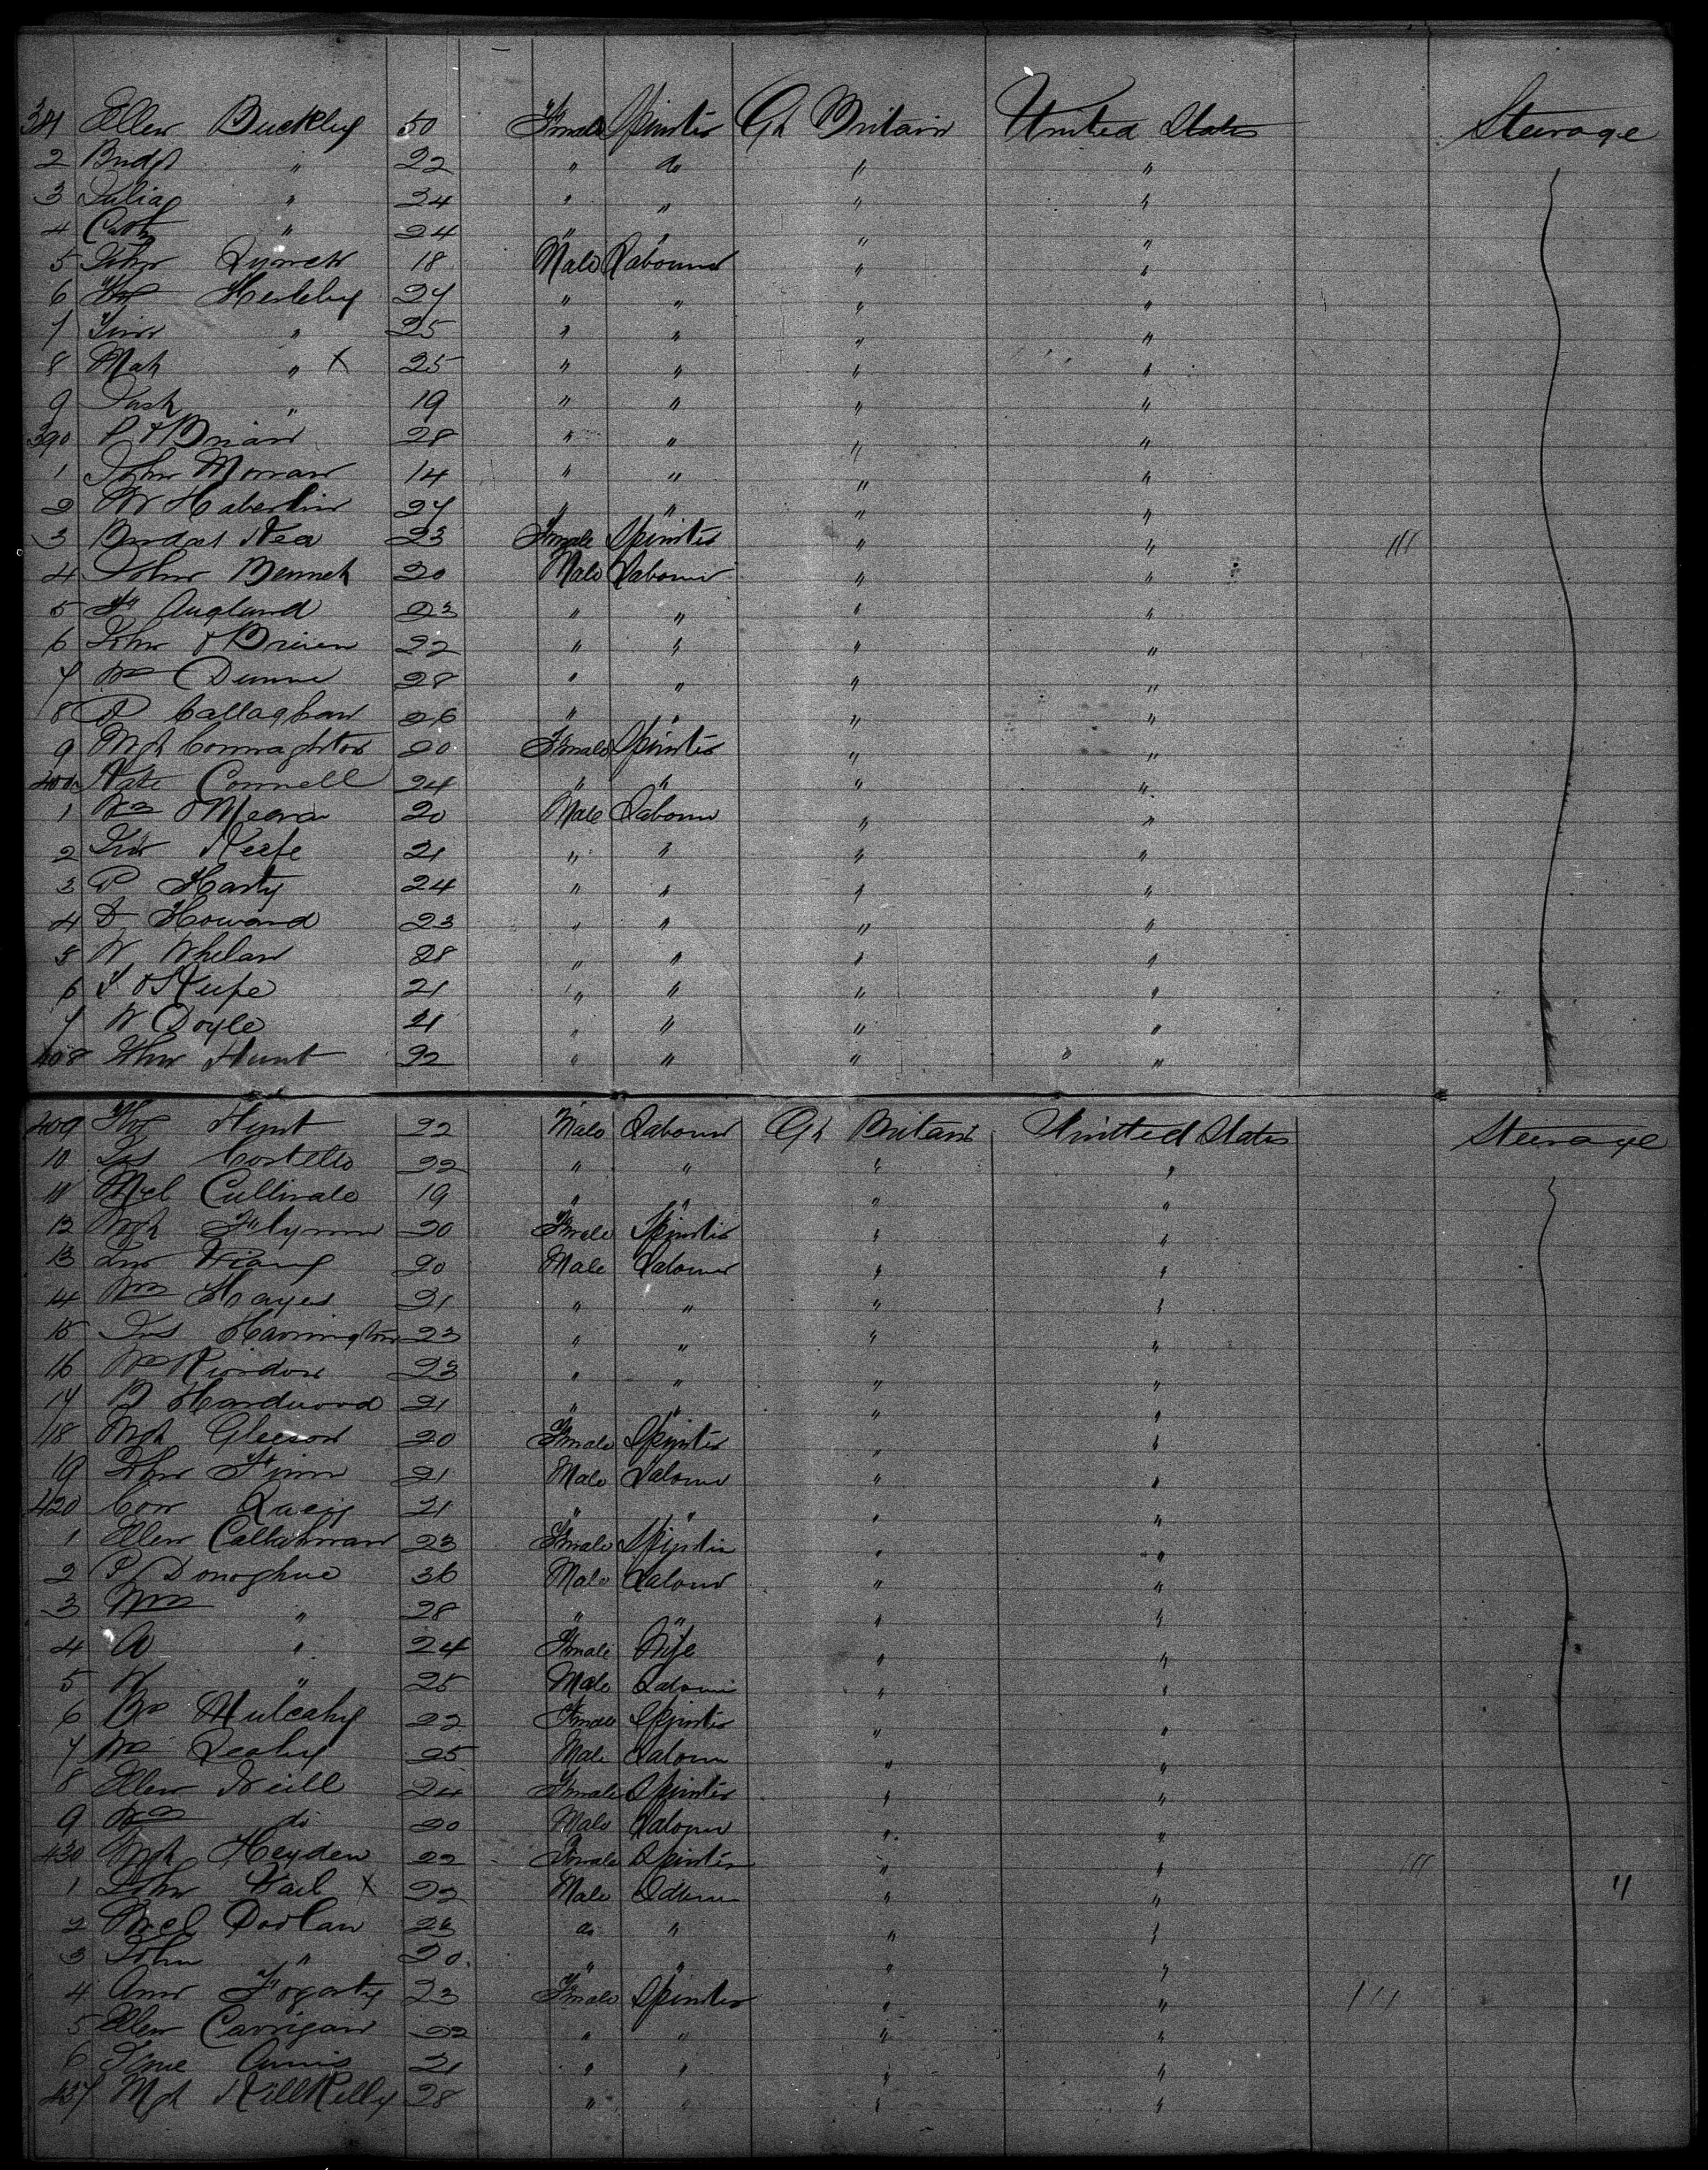 381 Ellen Buckley 50 Female Spinster Gt Britain United States Steerage
2 Bridgt " 22 " do " "
3 Julia " 24 " " " "
4 Cath " 24 " " " "
5 John Lynch 18 Male Labourer " "
6 27 " " " "
7 " 25 " " " "
8 " X 25 " " " "
9 " 19 " " " "
390 P O'Brian 28 " " " "
1 John Morran 14 " " " "
2 W Haberlin 27 " " " "
3 Bridget Nea 23 Female Spinster " " ///
4 John Bennet 20 Male Labourer " "
5 Augland 23 " " " "
6 John O'Brien 22 " " " "
7 Wm Dunne 28 " " " "
8 P Callaghan 26 " " " "
9 Mgt Connaghton 20 Female Spinster " "
400 Kate Connell 24 " " " "
1 Wm O'Meara 20 Male Labourer " "
2 Keefe 21 " " " "
3 P Harty 24 " " " "
4 D Howard 23 " " " "
5 W Whelan 28 " " " "
6 O'Keefe 21 " " " "
7 W Doyle 21 " " " "
408 John Hunt 22 " " " "
409 Thos Hunt 22 Male Labourer Gt Britain United States Steerage
10 Jas Costello 22 " " " "
11 Mcl Cullinale 19 " " " "
12 Mgt Flynn 20 Female Spinster " "
13 20 Male Labourer " "
14 Wm Hayes 21 " " " "
15 Jas Harrington 23 " " " "
16 Wm Riordon 23 " " " "
17 Hardwood 21 " " " "
418 Mgt Gleeson 20 Female Spinster " "
19 John Finn 21 Male Labourer " "
420 Con 21 " " " "
1 Ellen Callahnan 23 Female Spinster " "
2 P Donoghue 36 Male Labourer " "
3 Wm " 28 " " " "
4 " 24 Female Wife " "
5 W " 25 Male Labourer " "
6 Mulcahy 22 Female Spinster " "
7 Wm Leahy 25 Male Labourer " "
8 Ellen Neill 24 Female Spinster " "
9 Wm do 20 Male Labourer " "
430 Mgt Heyden 22 Female Spinster " " ///
1 John X 22 Male Labourer " " "
2 Mcl Doolan 26 do " " "
3 John " 20 " " " "
4 Ann Fogarty 23 Female Spinster " " ///
5 Ellen Carrigan 22 " " " "
6 Jane 21 " " " "
437 Mgt KillKelly 28 " " " "